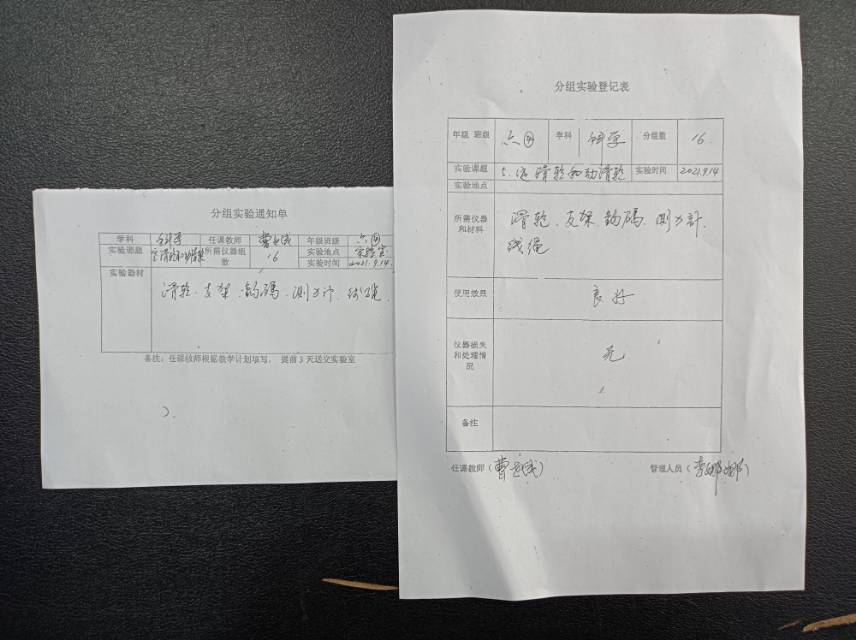 分组实验通知单
学科 科学 任课教师 曹 年级班级 六四
实验课题 定滑轮和动滑轮 所需仪器组数 16 实验地点 实验室
实验时间 2021.9.14.
实验器材 滑轮、支架、钩码、测力计、线绳
备注：任课教师根据教学计划填写， 提前3天送交实验室
分组实验登记表
年级 班级 六四 学科 科学 分组数 16
实验课题 5、定滑轮和动滑轮 实验时间 2021.9.14
实验地点
所需仪器和材料 滑轮、支架、钩码、测力计、
线绳
使用效果 良好
仪器损失和处理情况 无
备注
任课教师（曹 ） 管理人员（李娜娜）